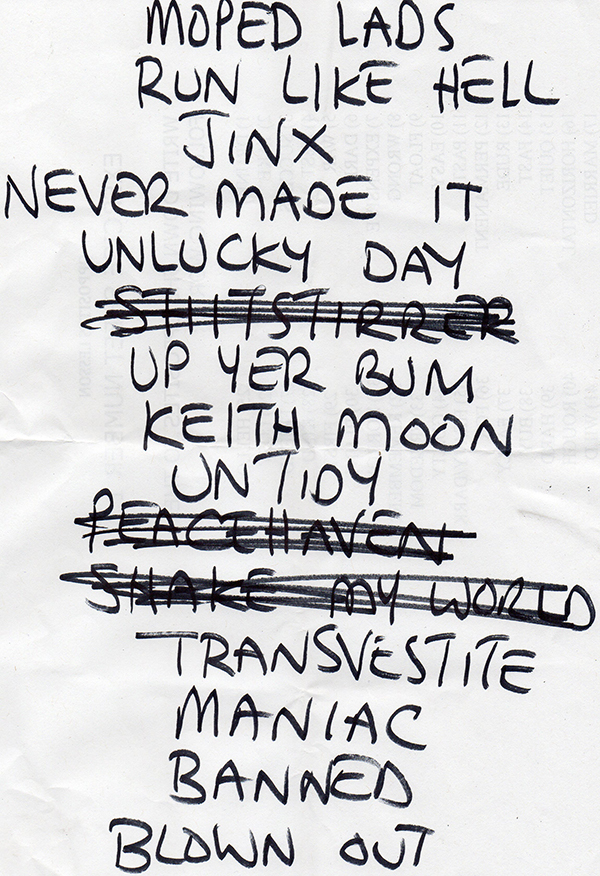 MOPED LADS
RUN LIKE HELL
JINX
NEVER MADE IT
UNLUCKY DAY
SHITSTIRRER
UP YER BUM
KEITH MOON
UNTIDY
PEACEHAVEN
SHAKE MY WORLD
TRANSVESTITE
MANIAC
BANNED
BLOWN OUT